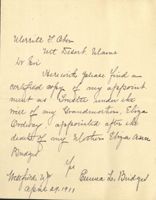 Merrill H. Ober
Mt Desert, Maine
Dr Sir
Herewith please find a
certified copy of my appoint
ment as Trustee under the
will of my Grandmother, Eliza
Ordway appointed after the
death of my Mother Eliza Ann
Bridges
Yrs
Emma L. Bridges
April 29, 1911